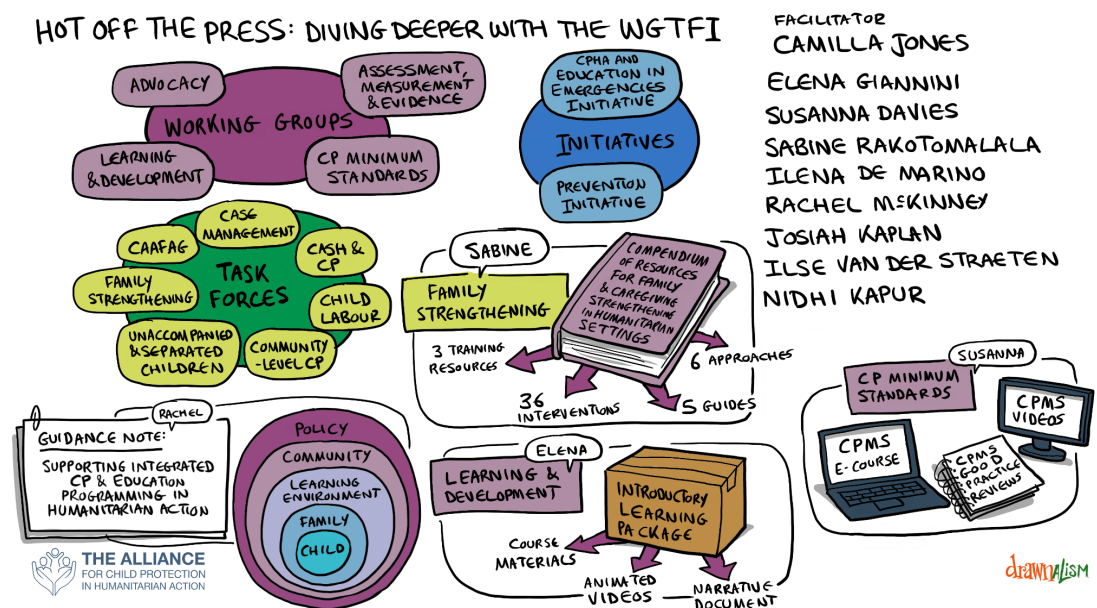 HOT OFF THE PRESS: DIVING DEEPER WITH THE WGTFI
FACILITATOR
CAMILLA JONES
ELENA GIANNINI
SUSANNA DAVIES
SABINE RAKOTOMALALA
ILENA DE MARINO
RACHEL McKINNEY
JOSIAH KAPLAN
ILSE VAN DER STRAETEN
NIDHI KAPUR
ADVOCACY
ASSESSMENT,
MEASUREMENT
& EVIDENCE
WORKING GROUPS
LEARNING
& DEVELOPMENT
CP MINIMUM
STANDARDS
CPHA AND
EDUCATION IN
EMERGENCIES
INITIATIVE
INITIATIVES
PREVENTION
INITIATIVE
CASE
MANAGEMENT
CAAFAG
CASH &
CP
TASK
FORCES
FAMILY
STRENGTHENING
CHILD
LABOUR
UNACCOMPANIED
& SEPARATED
CHILDREN
COMMUNITY
-LEVEL CP
SABINE
FAMILY
STRENGTHENING
COMPENDIUM
OF RESOURCES
FOR FAMILY
& CAREGIVING
STRENGTHENING
IN HUMANITARIAN
SETTINGS
3 TRAINING
RESOURCES
36
INTERVENTIONS
5 GUIDES
6 APPROACHES
RACHEL
GUIDANCE NOTE:
SUPPORTING INTEGRATED
CP & EDUCATION
PROGRAMMING IN
HUMANITARIAN ACTION
POLICY
COMMUNITY
LEARNING
ENVIRONMENT
FAMILY
CHILD
ELENA
LEARNING &
DEVELOPMENT
INTRODUCTORY
LEARNING
PACKAGE
COURSE
MATERIALS
ANIMATED
VIDEOS
NARRATIVE
DOCUMENT
SUSANNA
CP MINIMUM
STANDARDS
CPMS
E-COURSE
CPMS
GOOD
PRACTICE
REVIEWS
CPMS
VIDEOS
THE ALLIANCE
FOR CHILD PROTECTION
IN HUMANITARIAN ACTION
drawnALISM